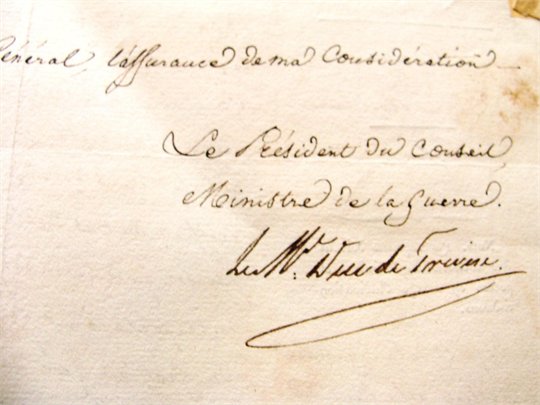 Général, l'assurance de ma Considération
Le Président du Conseil,
Ministre de la Guerre.
Le M.al Duc de Trévise.